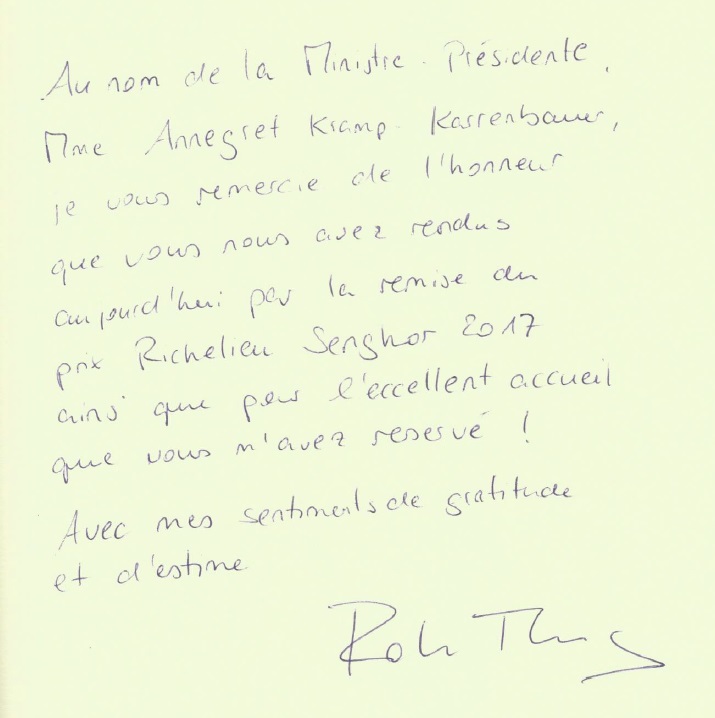 Au nom de la Ministre-Présidente,
Mme Annegret Kramp-Karrenbauer,
je vous remercie de l'honneur
que vous nous avez rendus
aujourd'hui par la remise du
prix Richelieu Senghor 2017
ainsi que pour l'excellent accueil
que vous m'avez reservé !
Avec mes sentiments de gratitude
et d'estime